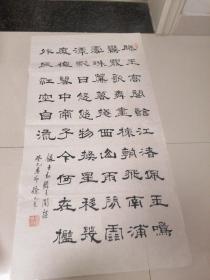 滕王高閣臨江渚佩玉鳴
鸞罷歌舞畫棟朝飛南浦
雲珠簾暮捲西山雨閒雲
潭影日悠悠物換星移幾
度秋閣中帝子今何在檻
外長江空自流